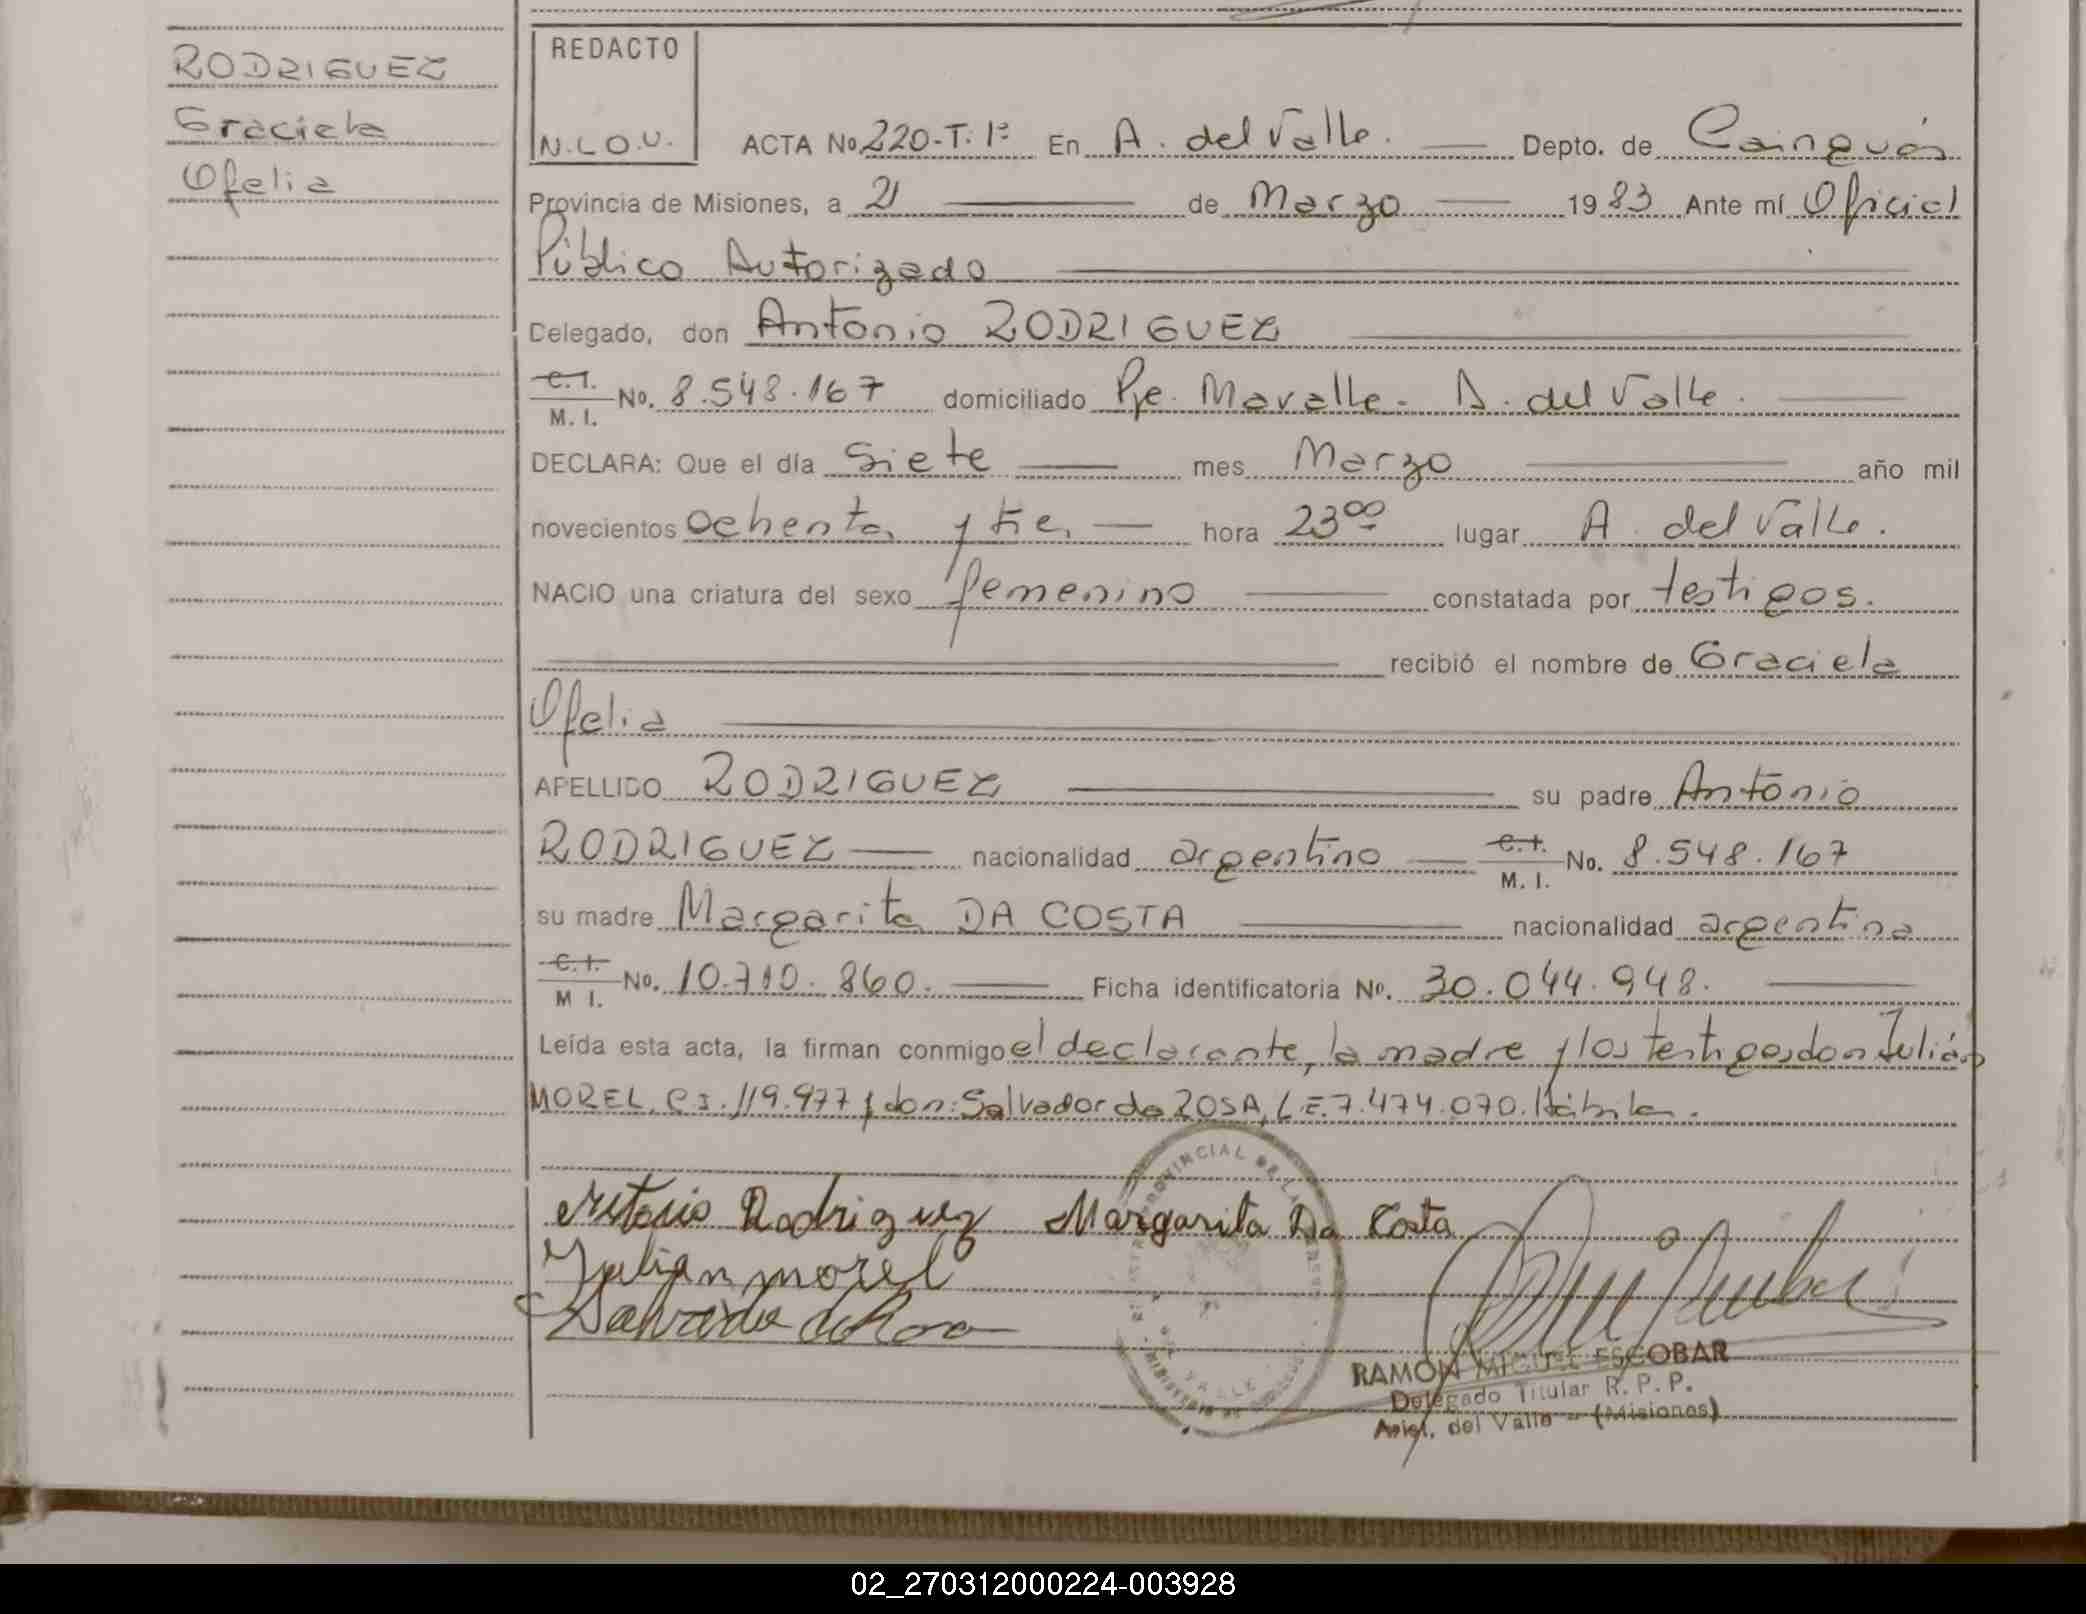 RODRIGUEZ
Graciela
Ofelia
REDACTO
N.L.O.U.
ACTA No. 220-T. 1º En A. del Valle. Depto. de Cainguás
Provincia de Misiones, a 21 de Marzo 1983 Ante mí Oficial
Público Autorizado
Delegado, don Antonio RODRIGUEZ
C.I.
M. I. No. 8.548.167 domiciliado Pje. Mavalle - A. del Valle.
DECLARA: Que el día Siete mes Marzo año mil
novecientos ochenta y tres hora 23⁰⁰ lugar A. del Valle.
NACIO una criatura del sexo femenino constatada por testigos.
recibió el nombre de Graciela
Ofelia
APELLIDO RODRIGUEZ su padre Antonio
RODRIGUEZ nacionalidad argentino C.I. M. I. No. 8.548.167
su madre Margarita DA COSTA nacionalidad argentina
C.I.
M I. No. 10.710.860. Ficha identificatoria Nº. 30.044.948.
Leída esta acta, la firman conmigo el declarante, la madre y los testigos don Julián
MOREL, CI. 119.977 y don: Salvador da ROSA, L.E. 7.474.070. Hábiles.
Antonio Rodriguez Margarita Da Costa
Julian morel
Salvador da Rosa
PROVINCIAL DE LAS
VALLE
MINISTERIO DE
RAMON MIGUEL ESCOBAR
Delegado Titular R. P. P.
Arist. del Valle - (Misiones)
02_270312000224-003928